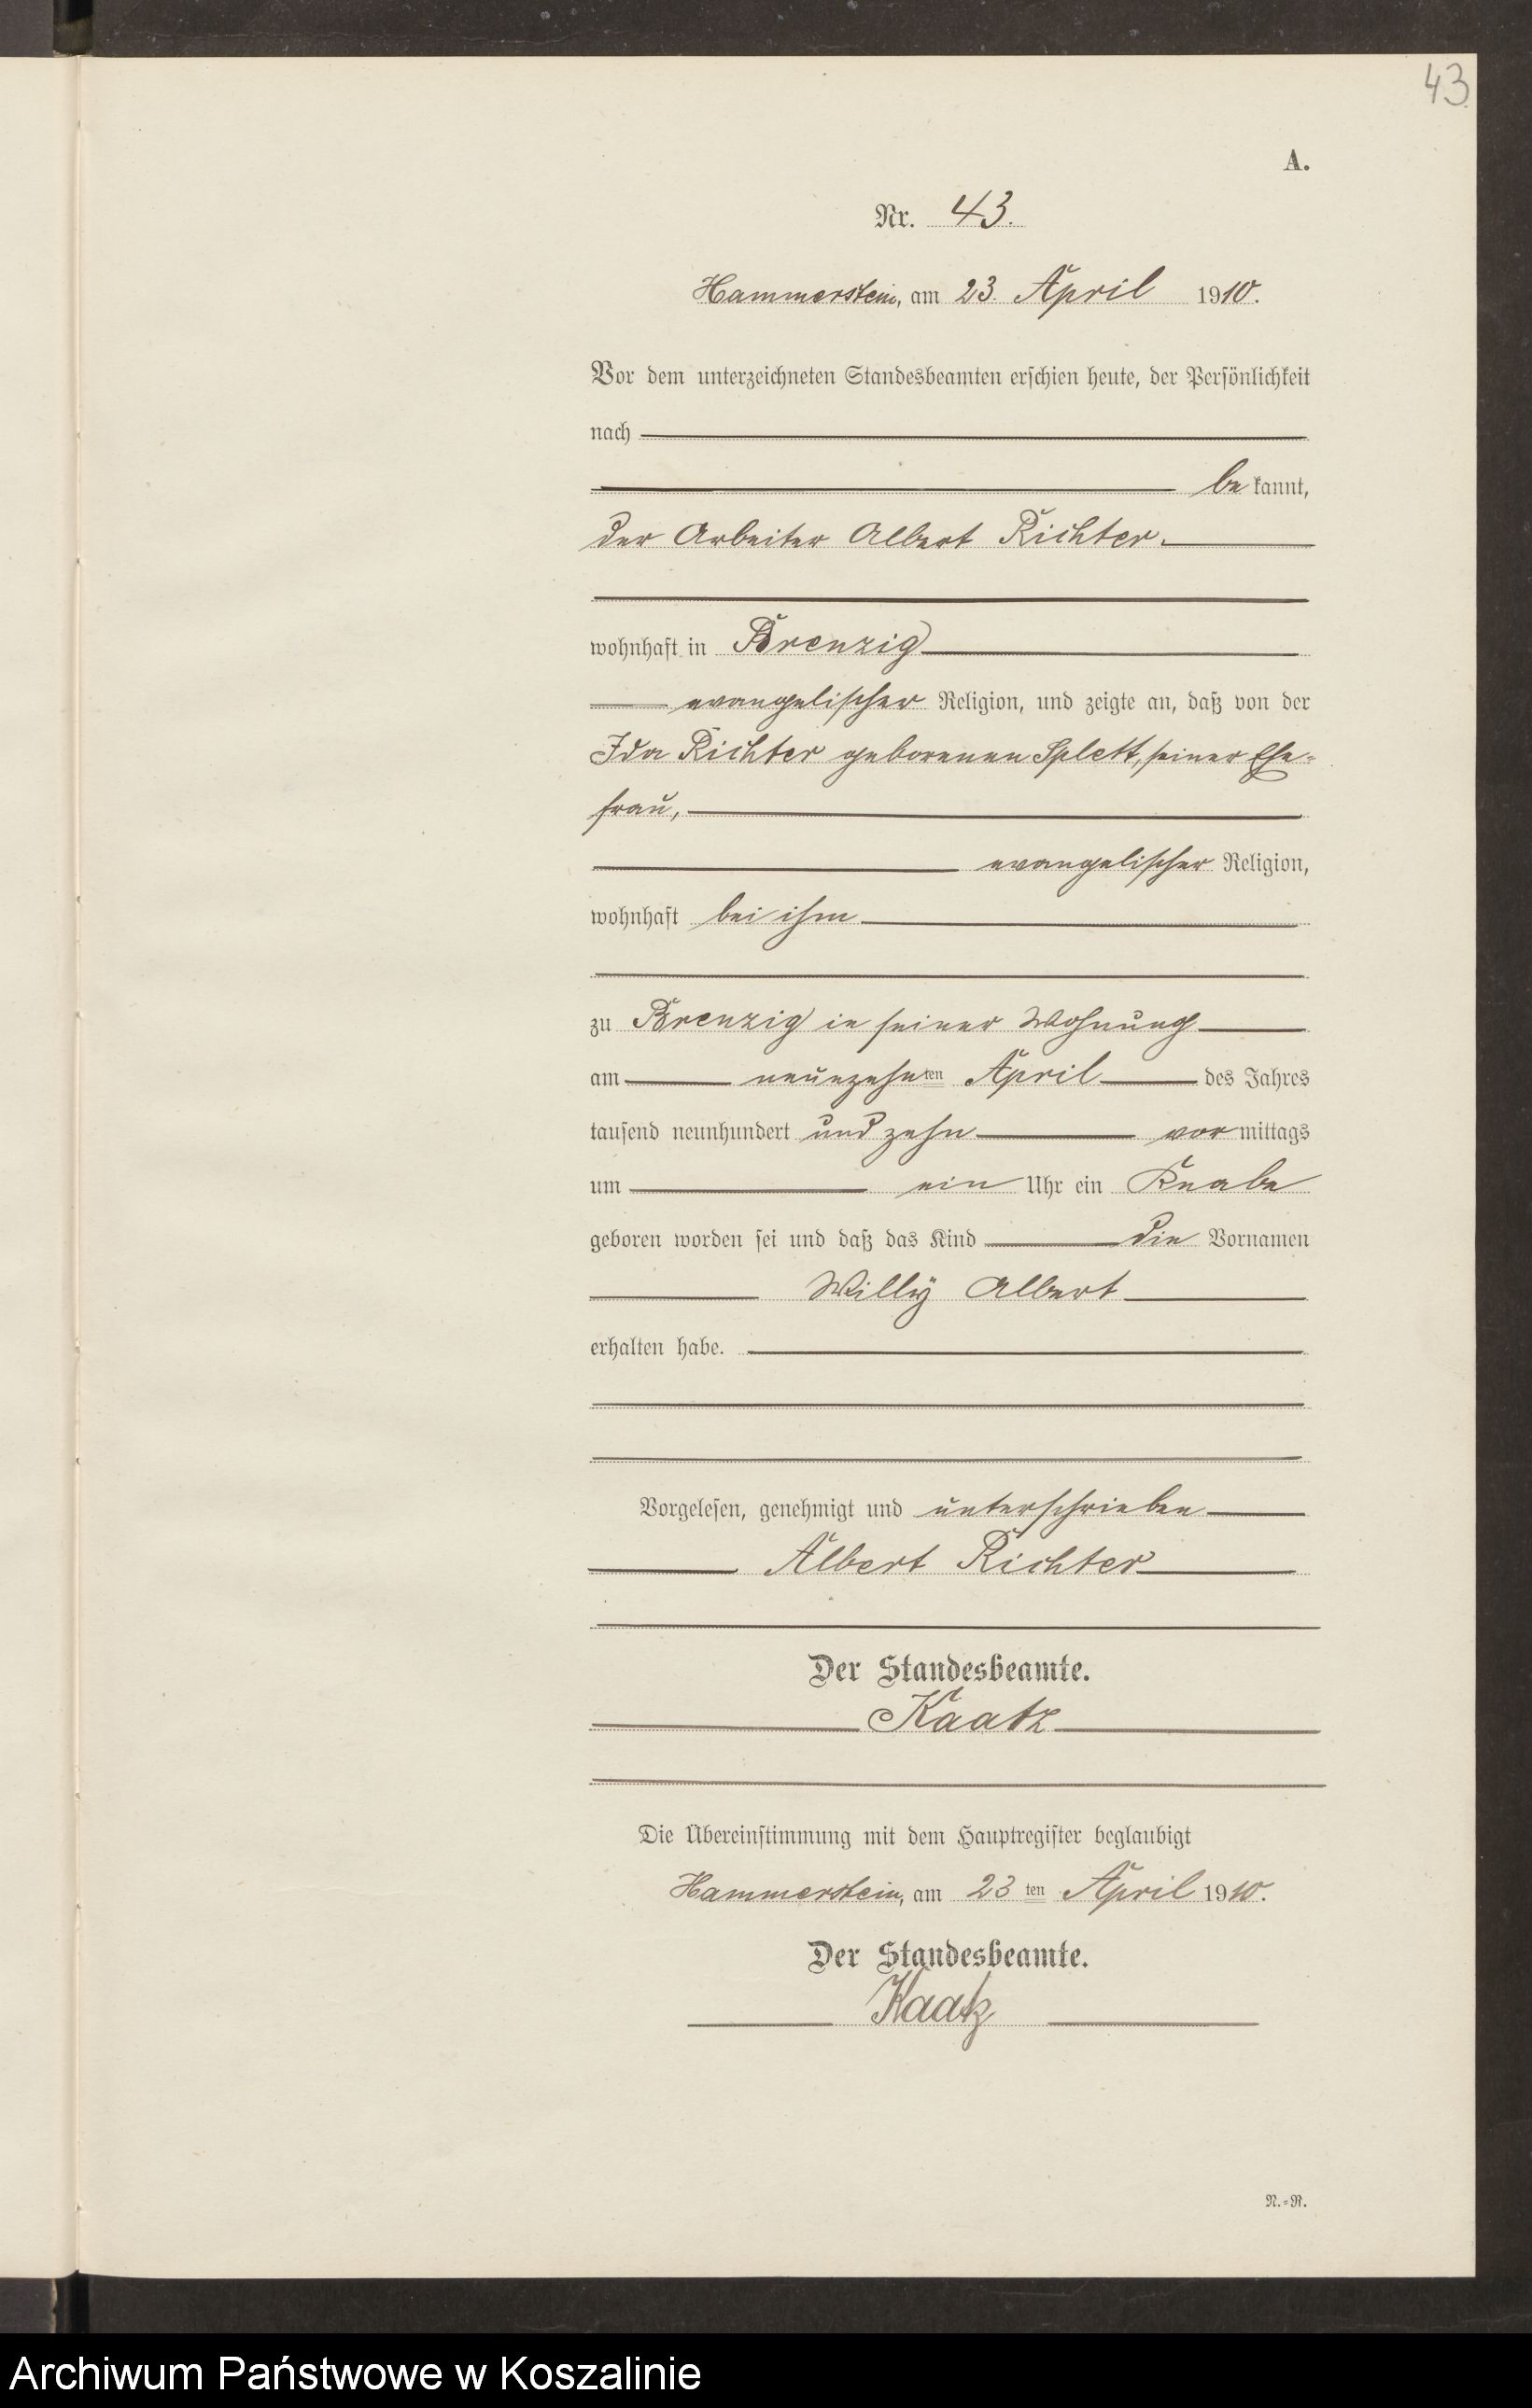 43
A.
Nr. 43.
Hammerstein, am 23. April 1910.
Vor dem unterzeichneten Standesbeamten erschien heute, der Persönlichkeit
nach
be kannt,
der Arbeiter Albert Richter.
wohnhaft in Brenzig
evangelischer Religion, und zeigte an, daß von der
Ida Richter geborenen Splett, seiner Ehe-
frau,
evangelischer Religion,
wohnhaft bei ihm
zu Brenzig in seiner Wohnung
am neunzehnten April des Jahres
tausend neunhundert und zehn vor mittags
um ein Uhr ein Knabe
geboren worden sei und daß das Kind die Vornamen
Willy Albert
erhalten habe.
Vorgelesen, genehmigt und unterschrieben
Albert Richter
Der Standesbeamte.
Kaatz
Die Übereinstimmung mit dem Hauptregister beglaubigt
Hammerstein, am 23 ten April 1910.
Der Standesbeamte.
Kaatz
N.-R.
Archiwum Państwowe w Koszalinie